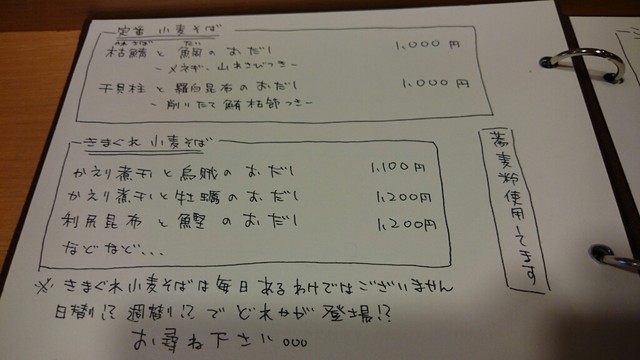 定番 小麦そば
枯鯖と鯛のおだし 1,000円
－メネギ、山わさびつき－
干貝柱と羅臼昆布のおだし 1,000円
－削りたて鮪枯節つき－
きまぐれ小麦そば
かえり煮干と烏賊のおだし 1,100円
かえり煮干と牡蠣のおだし 1,200円
利尻昆布と鰹のおだし 1,200円
などなど...
蕎麦粉使用してます
※きまぐれ小麦そばは毎日あるわけではございません
日替り!? 週替り!? で どれかが 登場!?
お尋ね下さい。。。